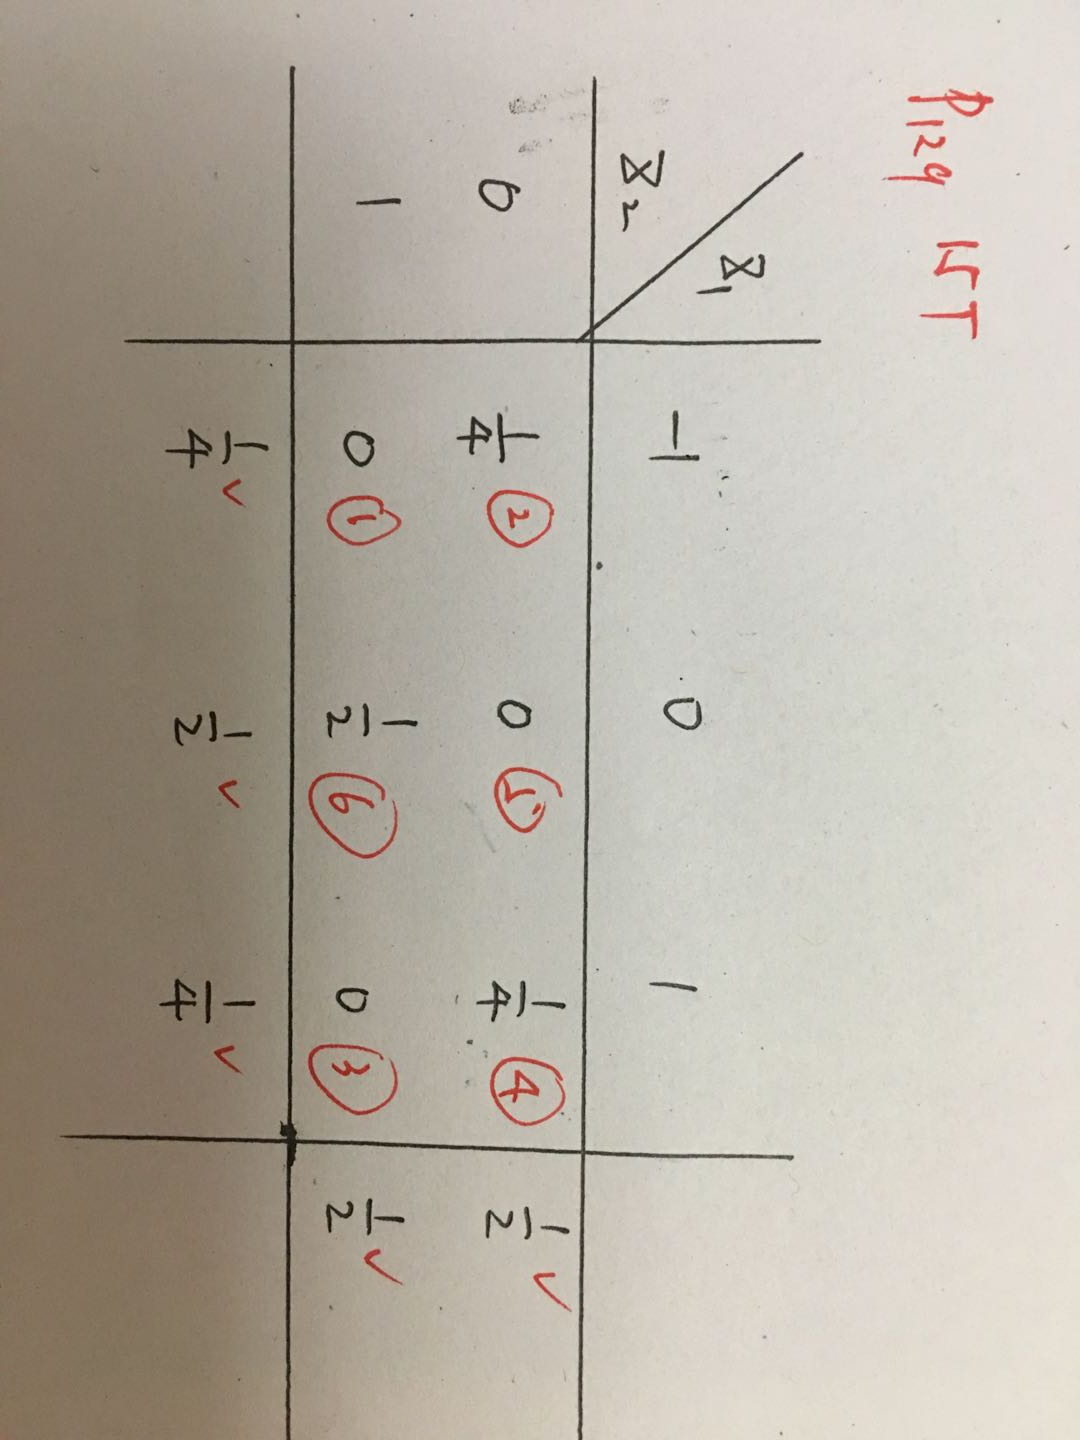 P129 15T
X₂ X₁ -1 0 1
0 1/4 ② 0 ⑤ 1/4 ④ 1/2 ✓
1 0 ① 1/2 ⑥ 0 ③ 1/2 ✓
1/4 ✓ 1/2 ✓ 1/4 ✓